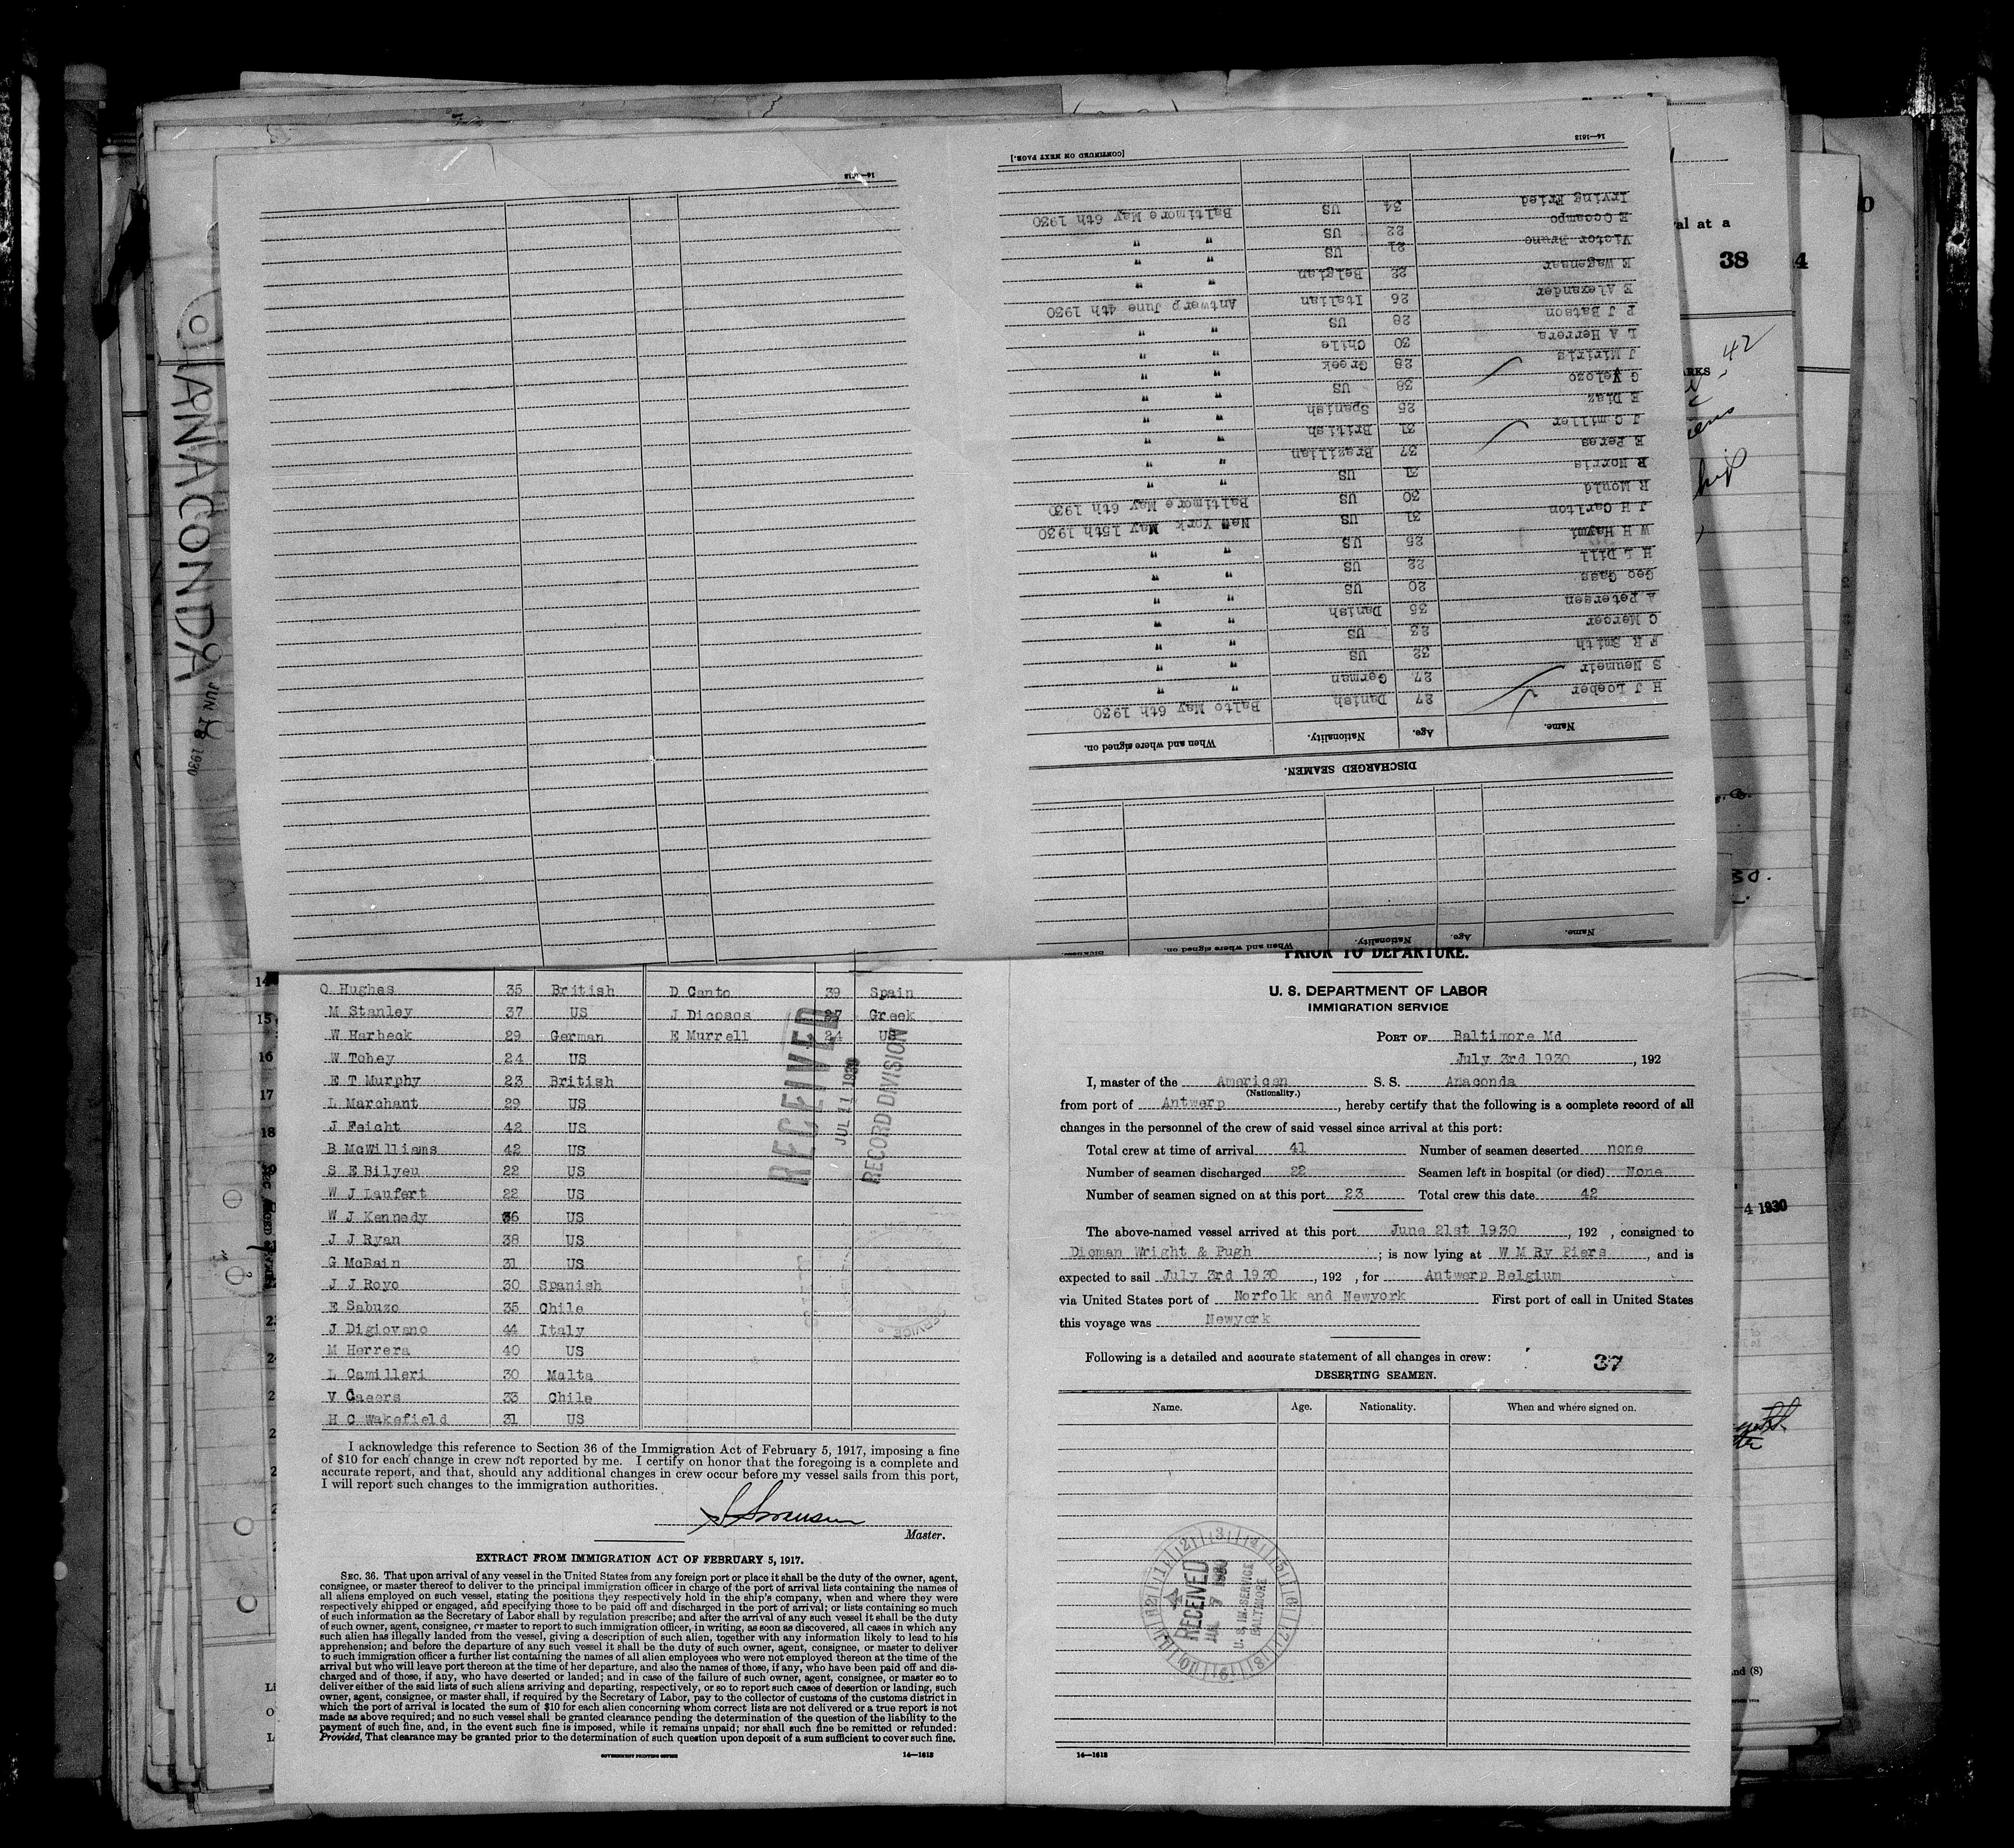 ANACONDA
JUN 28 1930
val at a
38
4
0
ARKS
42
Name. Age. Nationality. When and where signed on.
DISCHARGED SEAMEN.
Name. Age. Nationality. When and where signed on.
H J Loeber 27 Danish Balto May 6th 1930
S Neumeir 27 German " "
F R Smith 32 US " "
C Mercer 23 US " "
A Petersen 35 Danish " "
Geo Gass 20 US " "
H L Dill 22 US " "
W H Haymi 25 US " "
J H Carlton 31 US New York May 15th 1930
R Mould 30 US Baltimore May 6th 1930
R Morris 31 US " "
E Peres 37 Brazilian " "
J C miller 31 British " "
E Diaz 25 Spanish " "
G Velozo 38 US " "
J Miriris 28 Greek " "
L A Herrera 30 Chile " "
P J Batson 28 US " "
E Alexander 26 Italian Antwerp June 4th 1930
E Wagenaar 22 Belgian " "
Victor Bruno 21 US " "
E Ocoampo 22 US " "
Irving Fried 34 US Baltimore May 6th 1930
14—1613 [CONTINUED ON NEXT PAGE.]
14—1613
O Hughes 35 British D Canto 39 Spain
M Stanley 37 US J Dicosos 27 Greek
W Harbeck 29 German E Murrell 24 US
W Tohey 24 US
E T Murphy 23 British
L Marchant 29 US
J Feicht 42 US
B McWilliams 42 US
S E Bilyeu 22 US
W J Laufert 22 US
W J Kennedy 36 US
J J Ryan 38 US
G McBain 31 US
J J Royo 30 Spanish
E Sabuzo 35 Chile
J Digiovano 44 Italy
M Herrera 40 US
L Camilleri 30 Malta
V Caeers 33 Chile
H C Wakefield 31 US
RECEIVED
JUL 11 1930
RECORD DIVISION
I acknowledge this reference to Section 36 of the Immigration Act of February 5, 1917, imposing a fine
of $10 for each change in crew not reported by me. I certify on honor that the foregoing is a complete and
accurate report, and that, should any additional changes in crew occur before my vessel sails from this port,
I will report such changes to the immigration authorities.
S Sorensen
Master.
EXTRACT FROM IMMIGRATION ACT OF FEBRUARY 5, 1917.
SEC. 36. That upon arrival of any vessel in the United States from any foreign port or place it shall be the duty of the owner, agent,
consignee, or master thereof to deliver to the principal immigration officer in charge of the port of arrival lists containing the names of
all aliens employed on such vessel, stating the positions they respectively hold in the ship's company, when and where they were
respectively shipped or engaged, and specifying those to be paid off and discharged in the port of arrival; or lists containing so much
of such information as the Secretary of Labor shall by regulation prescribe; and after the arrival of any such vessel it shall be the duty
of such owner, agent, consignee, or master to report to such immigration officer, in writing, as soon as discovered, all cases in which any
such alien has illegally landed from the vessel, giving a description of such alien, together with any information likely to lead to his
apprehension; and before the departure of any such vessel it shall be the duty of such owner, agent, consignee, or master to deliver
to such immigration officer a further list containing the names of all alien employees who were not employed thereon at the time of the
arrival but who will leave port thereon at the time of her departure, and also the names of those, if any, who have been paid off and dis-
charged and of those, if any, who have deserted or landed; and in case of the failure of such owner, agent, consignee, or master so to
deliver either of the said lists of such aliens arriving and departing, respectively, or so to report such cases of desertion or landing, such
owner, agent, consignee, or master shall, if required by the Secretary of Labor, pay to the collector of customs of the customs district in
which the port of arrival is located the sum of $10 for each alien concerning whom correct lists are not delivered or a true report is not
made as above required; and no such vessel shall be granted clearance pending the determination of the question of the liability to the
payment of such fine, and, in the event such fine is imposed, while it remains unpaid; nor shall such fine be remitted or refunded:
Provided, That clearance may be granted prior to the determination of such question upon deposit of a sum sufficient to cover such fine.
GOVERNMENT PRINTING OFFICE 14—1613
PRIOR TO DEPARTURE.
U. S. DEPARTMENT OF LABOR
IMMIGRATION SERVICE
PORT OF Baltimore Md
July 3rd 1930, 192
I, master of the American S. S. Anaconda
(Nationality.)
from port of Antwerp, hereby certify that the following is a complete record of all
changes in the personnel of the crew of said vessel since arrival at this port:
Total crew at time of arrival 41 Number of seamen deserted none
Number of seamen discharged 22 Seamen left in hospital (or died) None
Number of seamen signed on at this port 23 Total crew this date 42
The above-named vessel arrived at this port June 21st 1930, 192 , consigned to
Dicman Wright & Pugh ; is now lying at W M Ry Piers, and is
expected to sail July 3rd 1930, 192 , for Antwerp Belgium
via United States port of Norfolk and Newyork First port of call in United States
this voyage was Newyork
Following is a detailed and accurate statement of all changes in crew: 37
DESERTING SEAMEN.
Name. Age. Nationality. When and where signed on.
RECEIVED
JUL 7 1930
U. S. IM. SERVICE
BALTIMORE
14—1613
4 1930
and (8)